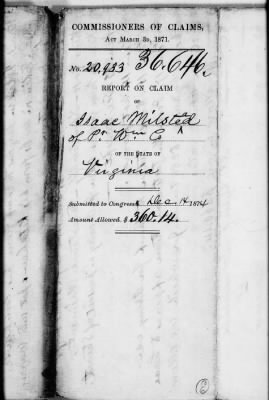 COMMISSIONERS OF CLAIMS,
ACT MARCH 3D, 1871.
No. 20,933 36.646.
REPORT ON CLAIM
OF
Isaac Milsted
of Pr Wm Co
OF THE STATE OF
Virginia
Submitted to Congress, Dec. 14 1874
Amount Allowed, $ 360.14.